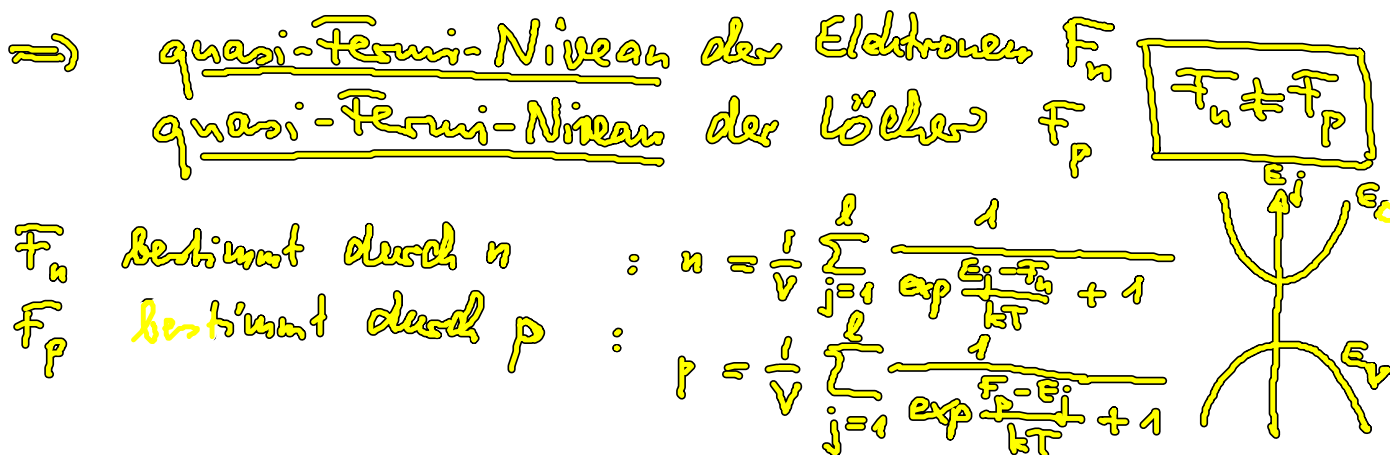 ⇒ quasi-Fermi-Niveau der Elektronen Fₙ
quasi-Fermi-Niveau der Löcher Fₚ
Fₙ ≠ Fₚ
Fₙ bestimmt durch n : n = 1/V ∑_{j=1}^{l} 1/(exp (E_j - F_n)/(kT) + 1)
Fₚ bestimmt durch p : p = 1/V ∑_{j=1}^{l} 1/(exp (F_p - E_j)/(kT) + 1)
E_j
E_c
E_v